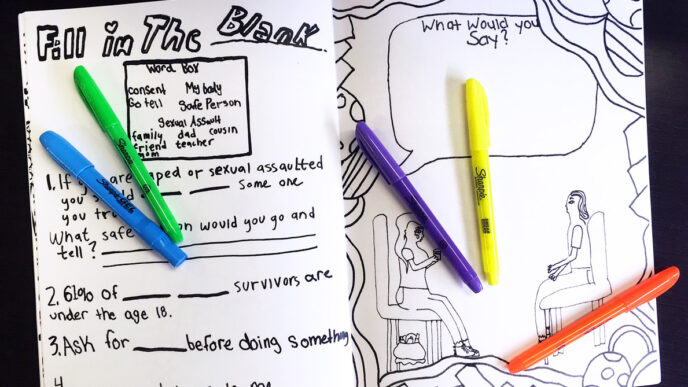 Fill in The Blank
Word Box
consent My body
Go tell Safe Person
Sexual Assault
family dad cousin
friend teacher
mom
1. If are aped or sexual assaulted
you some one
you
What safe on would you go and
tell?
2. 61% of survivors are
under the age 18.
3. Ask for before doing something
What Would you
Say?
Sharpie
Sharpie
Sharpie